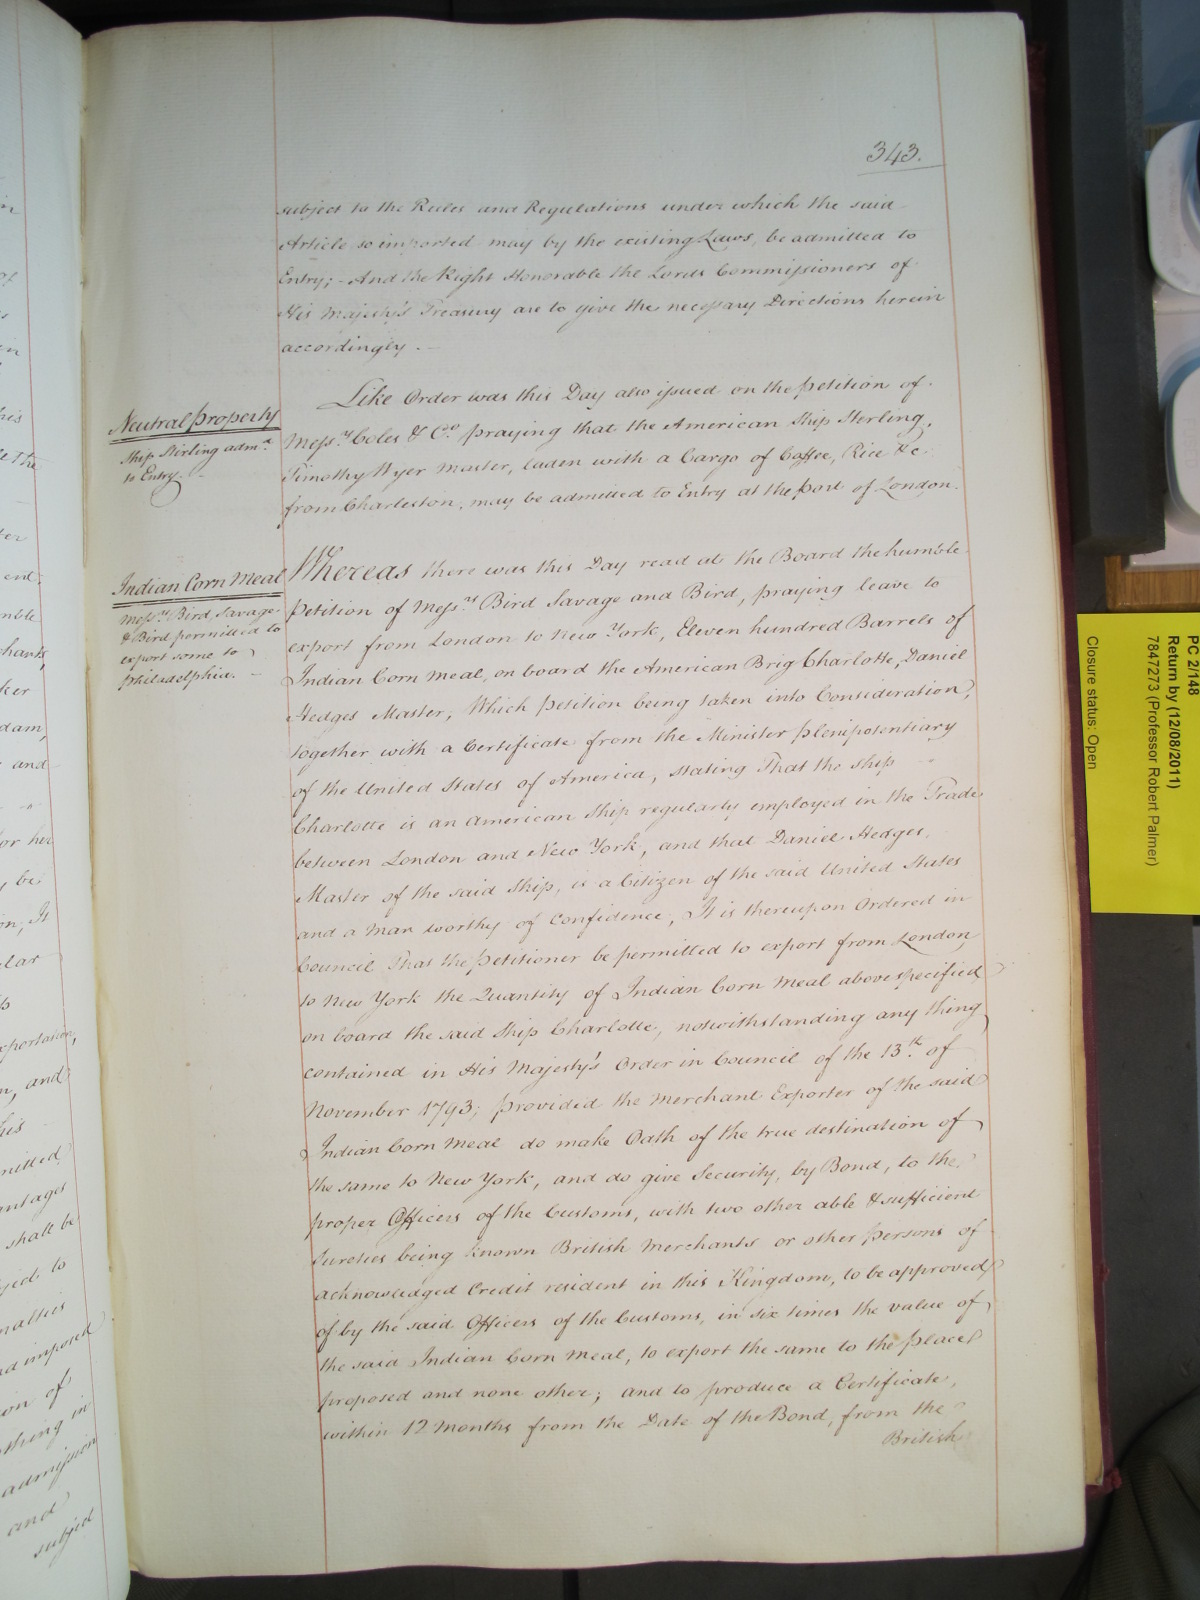 343.
subject to the Rules and Regulations under which the said
Article so imported may by the existing Laws, be admitted to
Entry; - And the Right Honorable the Lords Commissioners of
His Majesty's Treasury are to give the necessary Directions herein
accordingly. -
Neutral Property
Ship Stirling adm.d
to Entry. -
Like Order was this Day also issued on the Petition of
Mess.rs Coles & Co. praying that the American Ship Sterling,
Timothy Wyer Master, laden with a Cargo of Coffee, Rice &c.
from Charleston, may be admitted to Entry at the Port of London.
Indian Corn Meal
Mess.rs Bird, Savage
& Bird permitted to
export some to
Philadelphia. -
Whereas there was this Day read at the Board the humble
Petition of Mess.rs Bird Savage and Bird, praying leave to
export from London to New York, Eleven hundred Barrels of
Indian Corn Meal, on board the American Brig Charlotte, Daniel
Hedges Master; Which Petition being taken into Consideration,
together with a Certificate from the Minister Plenipotentiary
of the United States of America, stating That the Ship
Charlotte is an American Ship regularly employed in the Trade
between London and New York, and that Daniel Hedges,
Master of the said Ship, is a Citizen of the said United States
and a Man worthy of Confidence, It is thereupon Ordered in
Council That the Petitioner be permitted to export from London
to New York the Quantity of Indian Corn Meal above specified
on board the said Ship Charlotte, notwithstanding any thing
contained in His Majesty's Order in Council of the 13.th of
November 1793; provided the Merchant Exporter of the said
Indian Corn Meal do make Oath of the true destination of
the same to New York, and do give Security, by Bond, to the
proper Officers of the Customs, with two other able & sufficient
Sureties being known British Merchants or other persons of
acknowledged Credit resident in this Kingdom, to be approved
of by the said Officers of the Customs, in six times the value of
the said Indian Corn Meal, to export the same to the place
proposed and none other; and to produce a Certificate,
within 12 Months from the Date of the Bond, from the
British
PC 2/148
Return by (12/08/2011)
7847273 (Professor Robert Palmer)
Closure status: Open